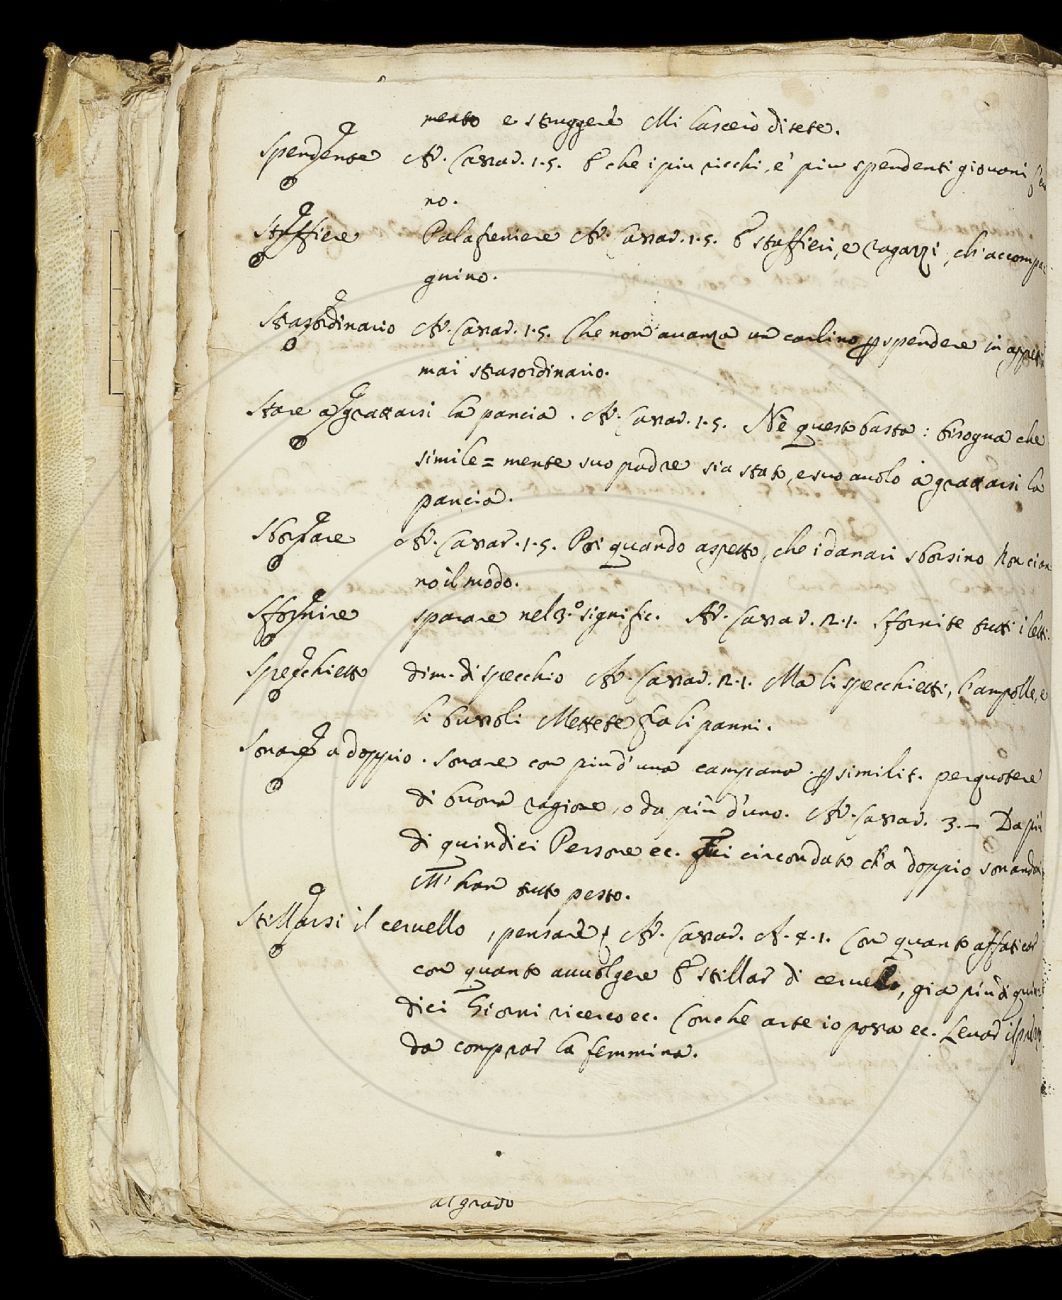 mento e struggere Mi lascerò di sete.
Spendente Ar. Cassar. 1. 5. E che i piu ricchi, e' piu spendenti giovani
no.
Staffiere Palafreniere Ar. Cassar. 1. 5. E staffieri, e ragazzi, ch'accompa
gnino.
Strasordinario Ar. Cassar. 1. 5. Che non avanza un carlino spendere in
mai strasordinario.
Stare a grattarsi la pancia. Ar. Cassar. 1. 5. Nè questo basta: bisogna che
simile = mente suo padre sia stato, e suo avolo à grattarsi la
pancia.
Sborsare Ar. Cassar. 1. 5. Poi quando aspetto, che i danari sborsino Non ci an
no il modo.
Sfornire sparare nel 3.º signific. Ar. Cassar. 2. 1. Sfornite tutti i letti.
Specchietto dim. di specchio Ar. Cassar. 2. 1. Ma li specchietti, l'ampolle, e
li bussoli Mettete fra li panni.
Sonare a doppio. sonare con piu d'una campana. similit. perquotere
di buona ragione, o da più d'uno. Ar. Cassar. 3. – Da più
di quindici Persone ec. Fui circondato ch'a doppio sonando
M'han tutto pesto.
Stillarsi il cervello, pensare Ar. Cassar. A. 4. 1. Con quanto affaticar
con quanto avvolgere E stillar di cervello, gia più di quin
dici Giorni ricerco ec. Con che arte io possa ec. Levar
da comprar la femmina.
al grado